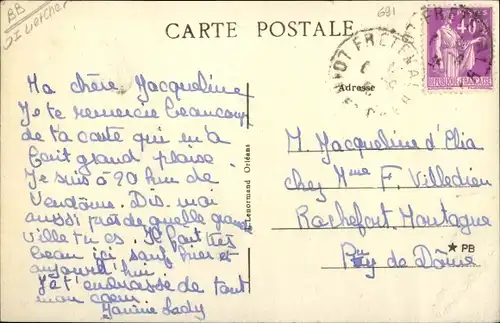 BB
681
CARTE POSTALE
Adresse
FRETEVAL
40c
POSTES
RÉPUBLIQUE FRANÇAISE
Ma chère Jacqueline
Je te remercie beaucoup
de ta carte qui m'a
fait grand plaisir.
Je suis à 20 km de
Vendôme. Dis moi
aussi près de quelle grande
ville tu es. Il fait très
beau ici sauf hier et
aujourd'hui.
Je t'embrasse de tout
mon cœur
Janine
Lenormand Orléans
M. Jacqueline d'Elia
chez Mme F. Villedieu
Rochefort. Montagne
Puy de Dôme
★PB